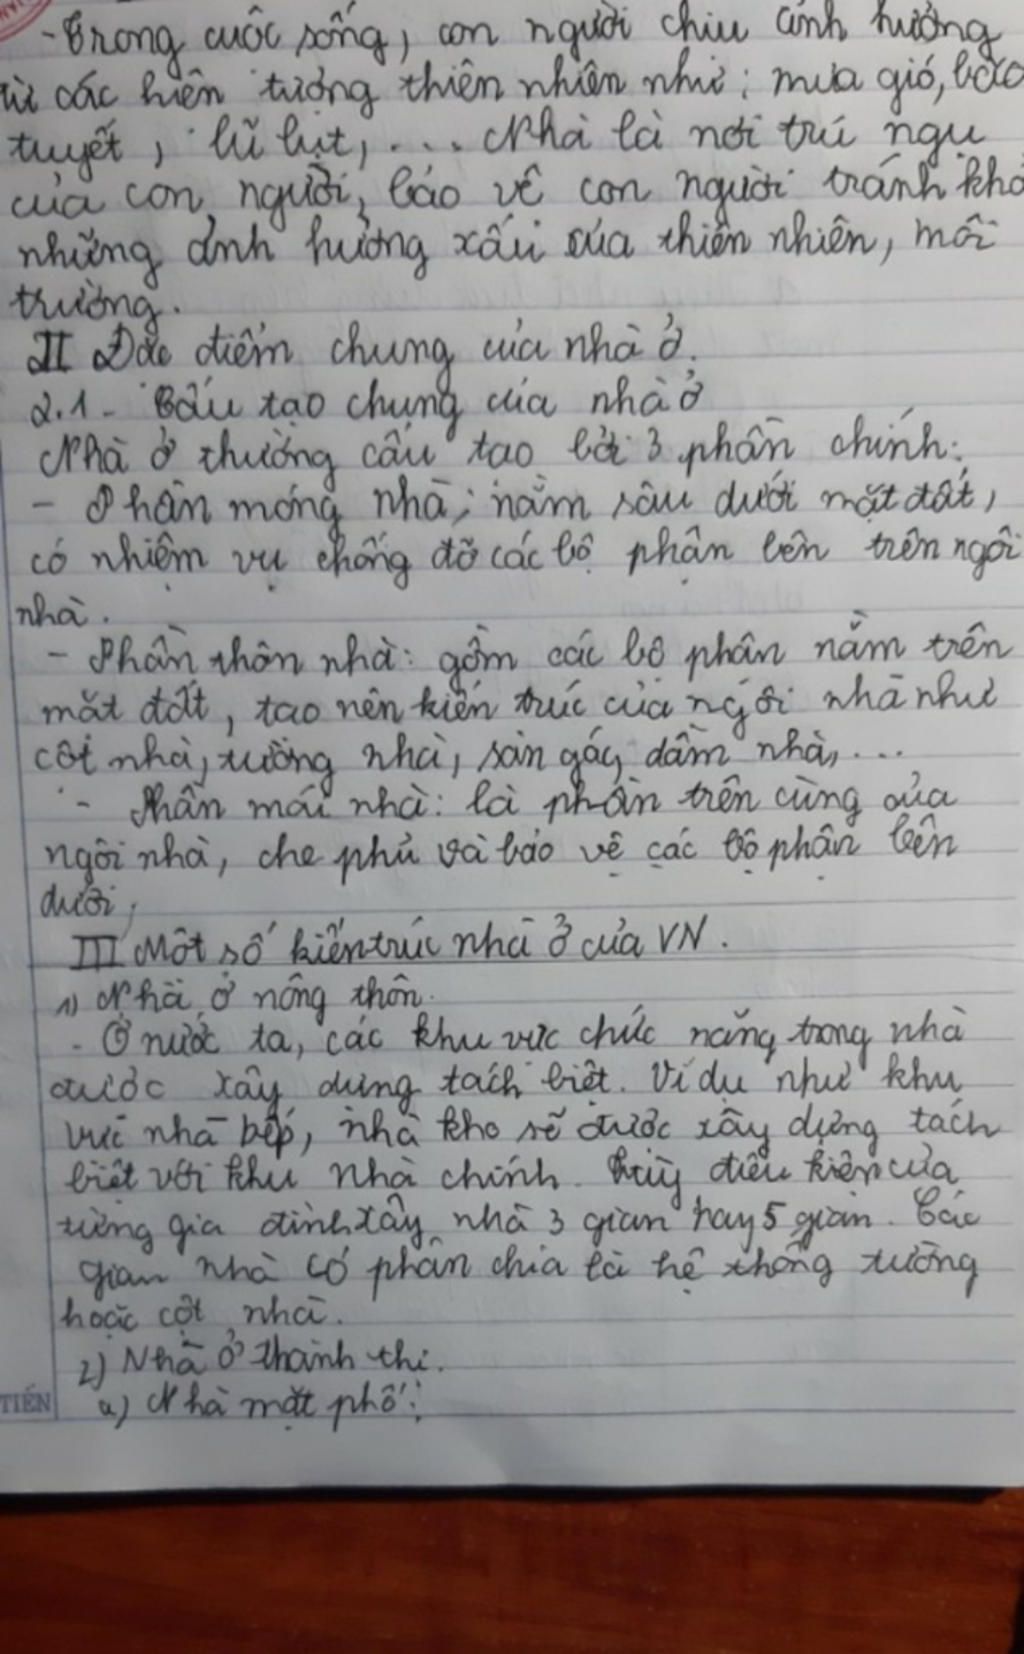 - Trong cuộc sống, con người chịu ảnh hưởng
từ các hiện tượng thiên nhiên như: mưa gió, bão
tuyết, lũ lụt, ... Nhà là nơi trú ngụ
của con người, bảo vệ con người tránh khỏ
những ảnh hưởng xấu của thiên nhiên, môi
trường.
II Đặc điểm chung của nhà ở.
2.1 - Cấu tạo chung của nhà ở
Nhà ở thường cấu tạo bởi 3 phần chính:
- Phần móng nhà: nằm sâu dưới mặt đất,
có nhiệm vụ chống đỡ các bộ phận bên trên ngôi
nhà.
- Phần thân nhà: gồm các bộ phận nằm trên
mặt đất, tạo nên kiến trúc của ngôi nhà như
cột nhà, tường nhà, sàn gác, dầm nhà, ...
- Phần mái nhà: là phần trên cùng của
ngôi nhà, che phủ và bảo vệ các bộ phận bên
dưới.
III Một số kiến trúc nhà ở của VN.
1) Nhà ở nông thôn.
- Ở nước ta, các khu vực chức năng trong nhà
được xây dựng tách biệt. Ví dụ như khu
vực nhà bếp, nhà kho sẽ được xây dựng tách
biệt với khu nhà chính. Tuỳ điều kiện của
từng gia đình xây nhà 3 gian hay 5 gian. Các
gian nhà có phân chia là hệ thống tường
hoặc cột nhà.
2) Nhà ở thành thị.
a) Nhà mặt phố:
TIẾN